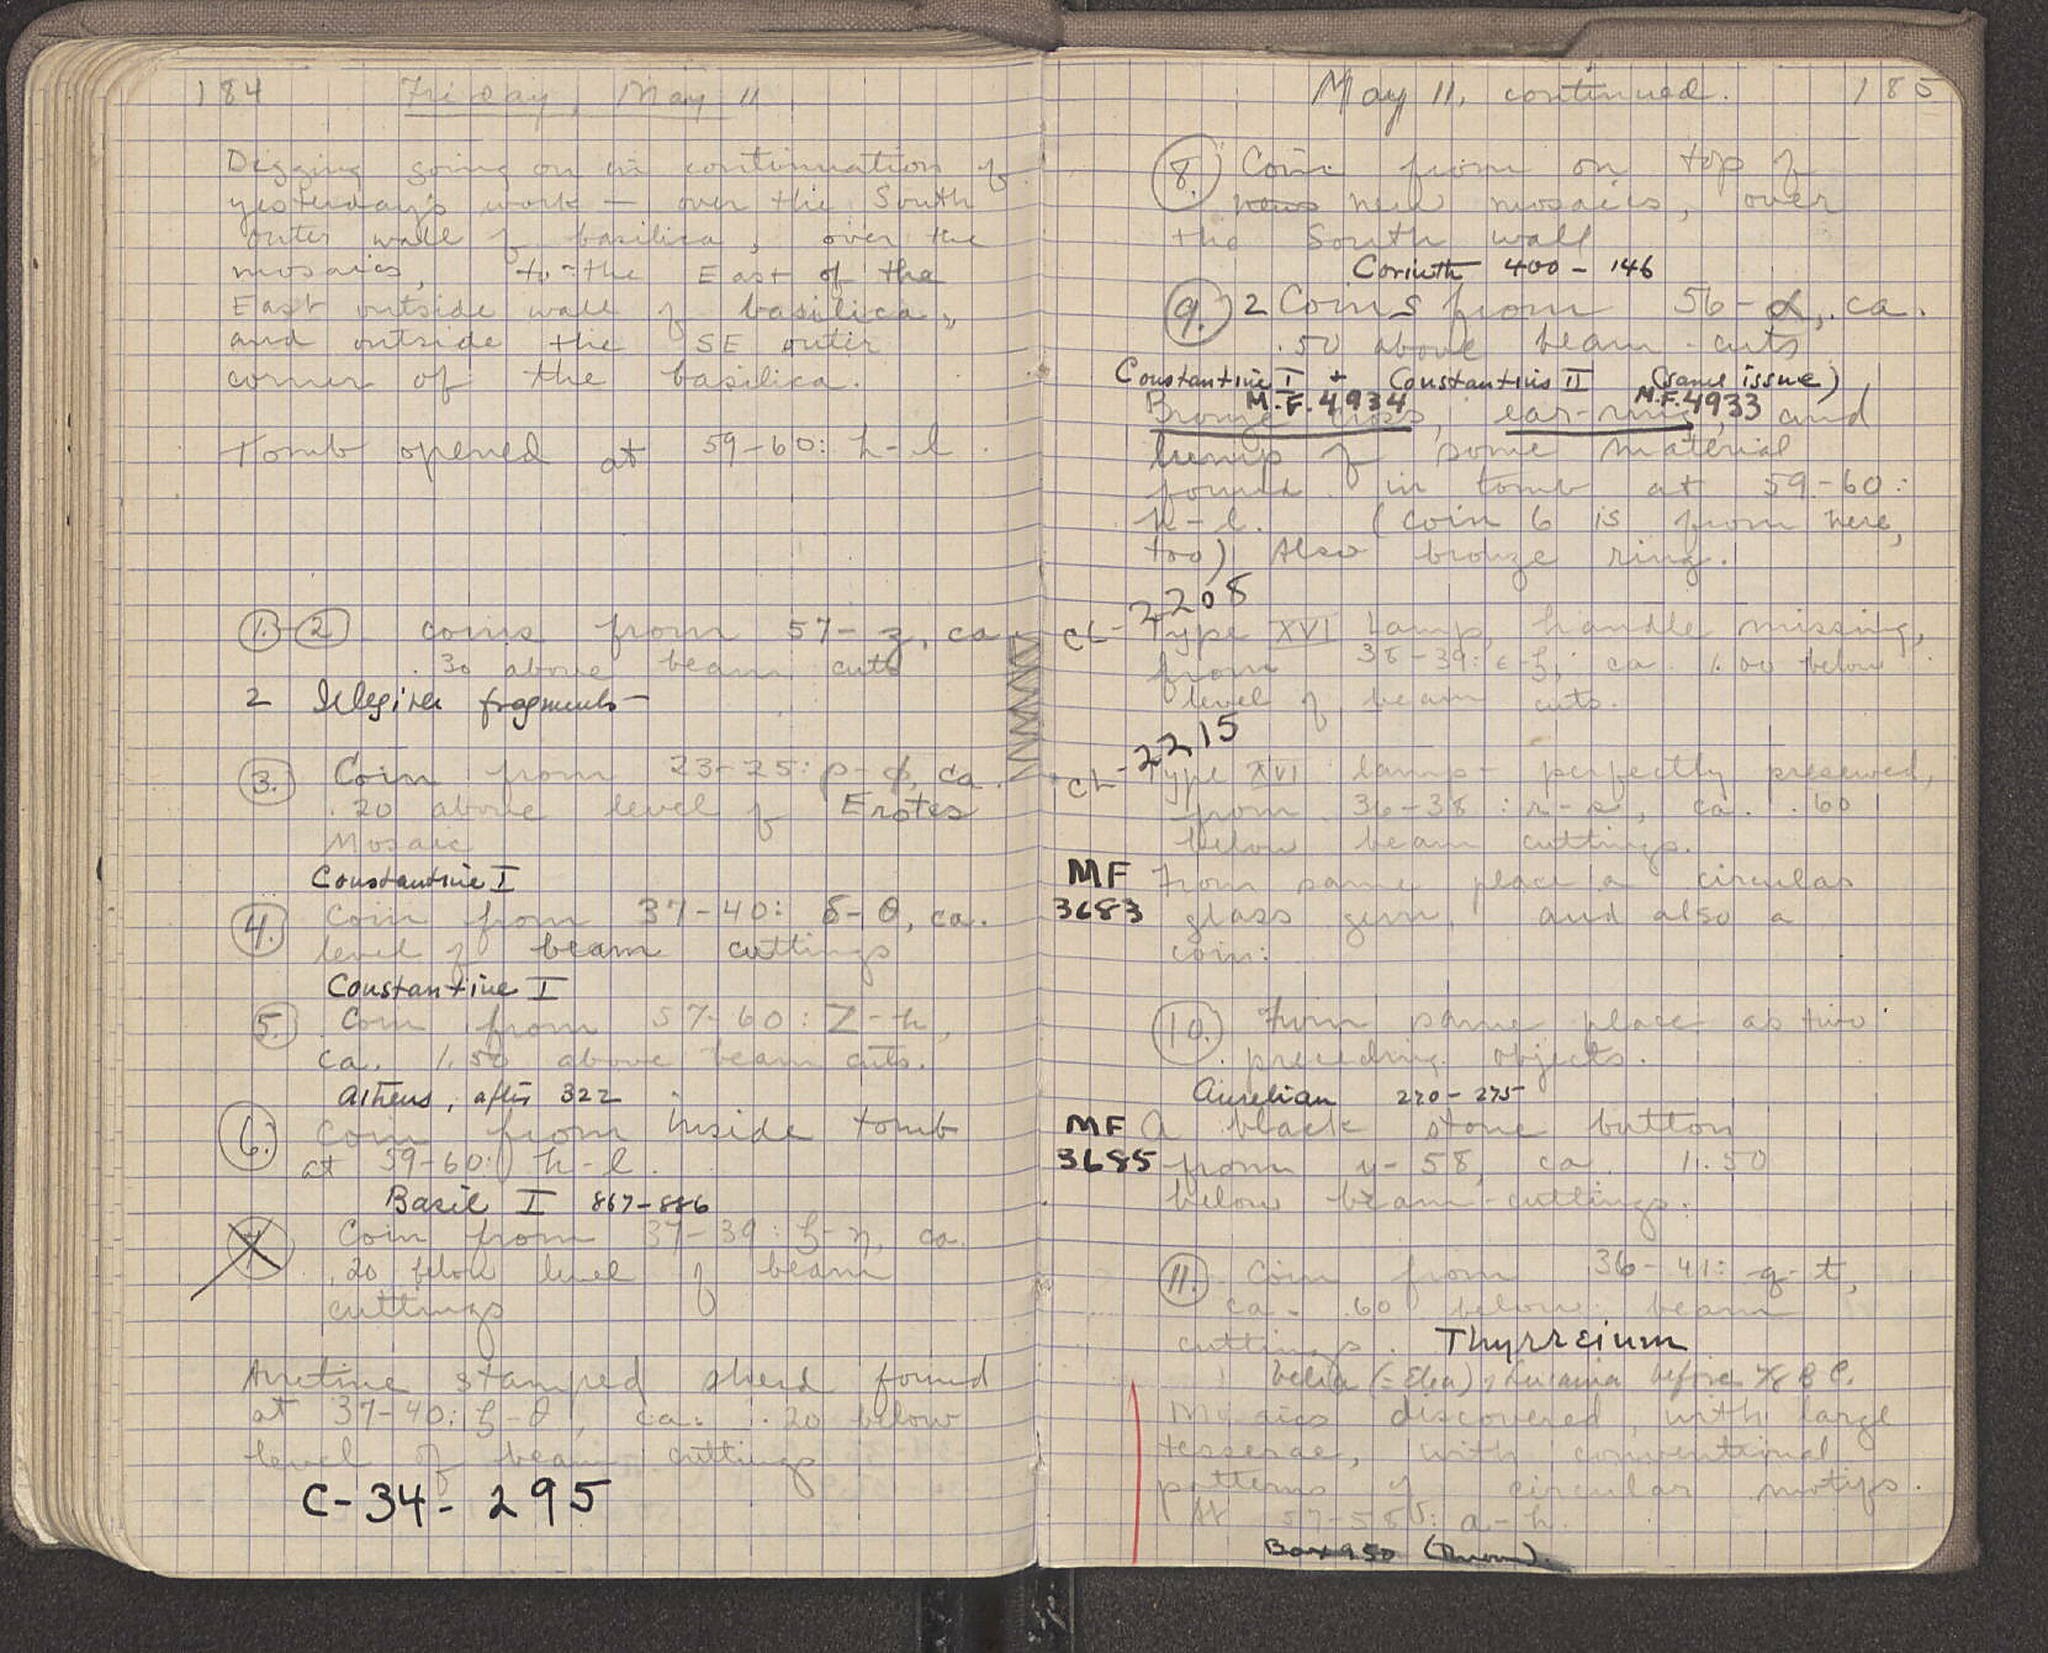 184 Friday, May 11
Digging going on in continuation of
yesterday's work — over the South
outer wall of basilica, over the
mosaics, to the East of the
East outside wall of basilica,
and outside the SE outer
corner of the basilica.
Tomb opened at 59-60: h-l.
1.-2 coins from 57-z, ca
.30 above beam cuts
2 Illegible fragments
3. Coin from 23-25: p-φ, ca.
.20 above level of Erotes
Mosaic
Constantine I
4. Coin from 37-40: δ-θ, ca.
level of beam cuttings
Constantine I
5. Coin from 57-60: Z-h,
ca. 1.50 above beam cuts.
Athens, after 322
6. Coin from inside tomb
at 59-60: h-l.
Basil I 867-886
7. Coin from 37-39: ζ-η, ca.
.20 below level of beam
cuttings
Arretine stamped sherd found
at 37-40: ζ-θ, ca. .20 below
level of beam cuttings
C-34-295
May 11, continued. 185
8. Coin from on top of
news new mosaics, over
the South wall
Corinth 400-146
9. 2 Coins from 56-α, ca.
.50 above beam-cuts
Constantine I + Constantius II (same issue)
M.F. 4934 M.F. 4933
Bronze cross, ear-ring, and
lump of some material
found in tomb at 59-60:
h-l. (coin 6 is from here,
too) Also bronze ring.
CL-2208
Type XVI Lamp, handle missing,
from 38-39: ε-ζ, ca. 1.00 below
level of beam cuts.
CL-2215
Type XVI lamp - perfectly preserved,
from 36-38: r-s, ca. .60
below beam cuttings.
MF From same place a circular
3683 glass gem, and also a
coin:
10. From same place as two
preceding objects.
Aurelian 270-275
MF A black stone button
3685 from y-58, ca. 1.50
below beam-cuttings.
11. Coin from 36-41: q-t,
ca. .60 below beam
cuttings. Thyrreium
Velia (=Elea), Lucania before B.C.
Mosaics discovered, with large
tesserae, with conventional
patterns of circular motifs.
At 57-58: a-h.
Box 950